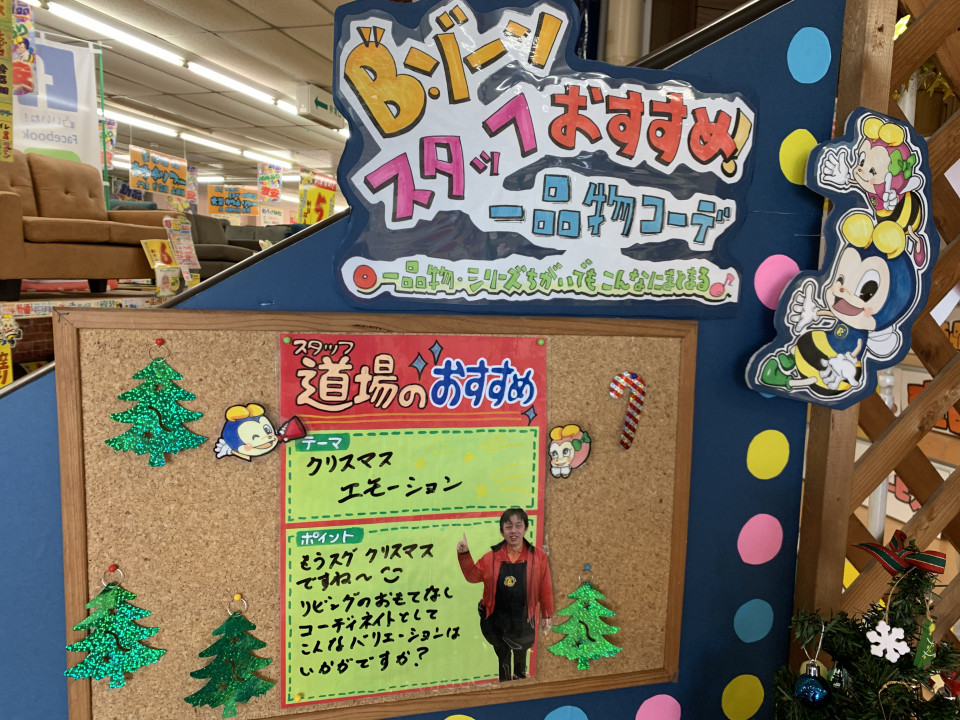 B・ゾーン
スタッフおすすめ!
一品物コーデ
一品物・シリーズちがいでも こんなにまとまる♪
スタッフ
道場のおすすめ
テーマ
クリスマス
エモーション
ポイント
もうスグ クリスマス
ですね〜
リビングのおもてなし
コーディネイトとして
こんなバリエーションは
いかがですか?
f
いいね!
Facebook